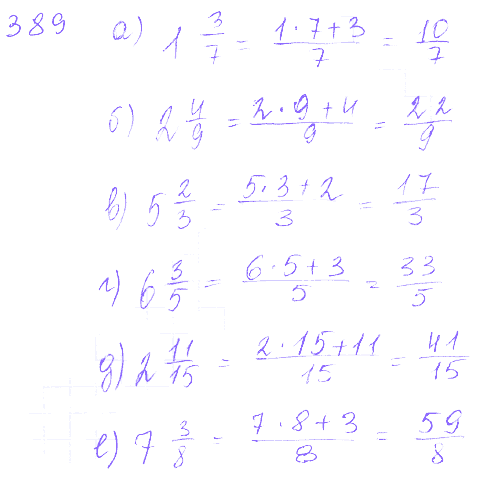 389 а) 1 3/7 = (1·7+3)/7 = 10/7
б) 2 4/9 = (2·9+4)/9 = 22/9
в) 5 2/3 = (5·3+2)/3 = 17/3
г) 6 3/5 = (6·5+3)/5 = 33/5
д) 2 11/15 = (2·15+11)/15 = 41/15
е) 7 3/8 = (7·8+3)/8 = 59/8